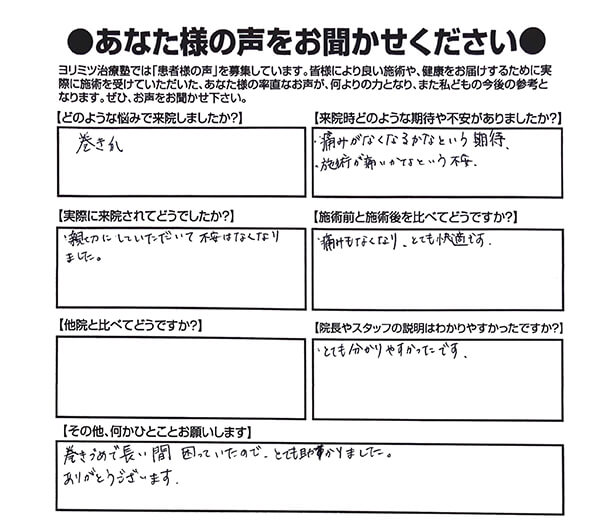 ●あなた様の声をお聞かせください●
ヨリミツ治療塾では「患者様の声」を募集しています。皆様により良い施術や、健康をお届けするために実
際に施術を受けていただいた、あなた様の率直なお声が、何よりの力となり、また私どもの今後の参考と
なります。ぜひ、お声をお聞かせ下さい。
【どのような悩みで来院しましたか?】
巻き爪
【来院時どのような期待や不安がありましたか?】
・痛みがなくなるかなという期待。
・施術が痛いかなという不安。
【実際に来院されてどうでしたか?】
・親切にしていただいて不安はなくなり
ました。
【施術前と施術後を比べてどうですか?】
・痛みもなくなり、とても快適です。
【他院と比べてどうですか?】
【院長やスタッフの説明はわかりやすかったですか?】
・とても分かりやすかったです。
【その他、何かひとことお願いします】
巻きづめで長い間困っていたので、とても助かりました。
ありがとうございます。